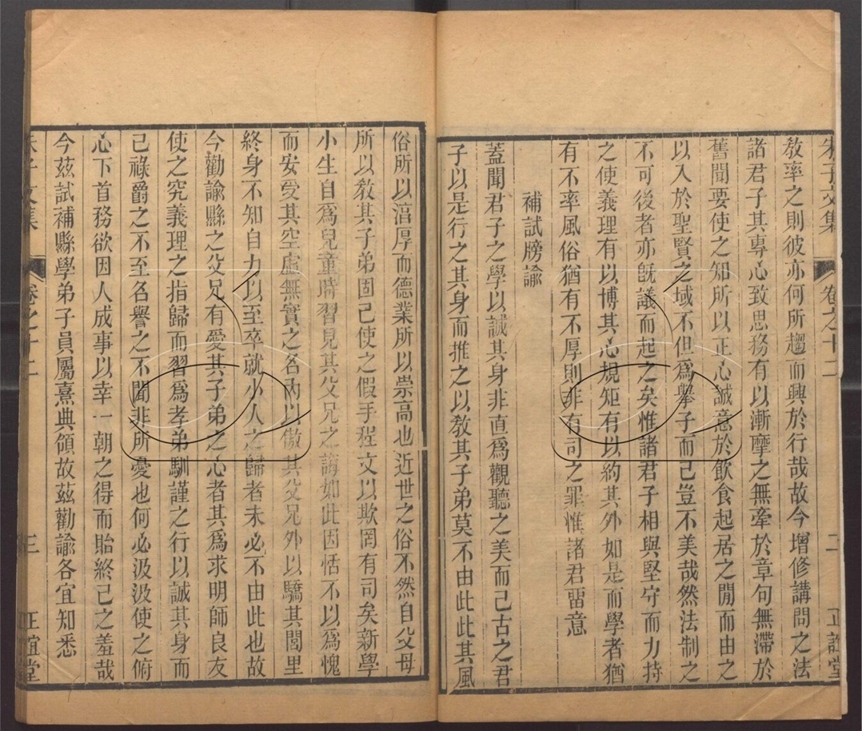 朱子文集　卷之十二　二　正誼堂
敎率之則彼亦何所趨而興於行哉故今增修講問之法
諸君子其專心致思務有以漸摩之無牽於章句無滯於
舊聞要使之知所以正心誠意於飮食起居之閒而由之
以入於聖賢之域不但為舉子而已豈不美哉然法制之
不可後者亦旣議而起之矣惟諸君子相與堅守而力持
之使義理有以博其心規矩有以約其外如是而學者猶
有不率風俗猶有不厚則非有司之罪惟諸君畱意
補試牓諭
蓋聞君子之學以誠其身非直為觀聽之美而已古之君
子以是行之其身而推之以敎其子弟莫不由此此其風
俗所以湻厚而德業所以崇高也近世之俗不然自父母
所以敎其子弟固已使之假手程文以欺罔有司矣新學
小生自為兒童時習見其父兄之誨如此因恬不以為愧
而安受其空虛無實之名內以傲其父兄外以驕其閭里
終身不知自力以至卒就小人之歸者未必不由此也故
今勸諭縣之父兄有愛其子弟之心者其為求明師良友
使之究義理之指歸而習為孝弟馴謹之行以誠其身而
已祿爵之不至名譽之不聞非所憂也何必汲汲使之俯
心下首務欲因人成事以幸一朝之得而貽終己之羞哉
今茲試補縣學弟子員屬熹典領故茲勸諭各宜知悉
朱子文集　卷之十二　三　正誼堂